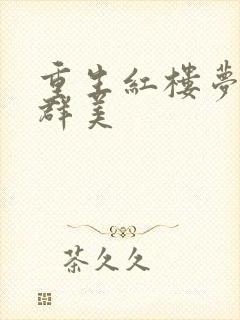 重生紅樓夢
群美
茶久久